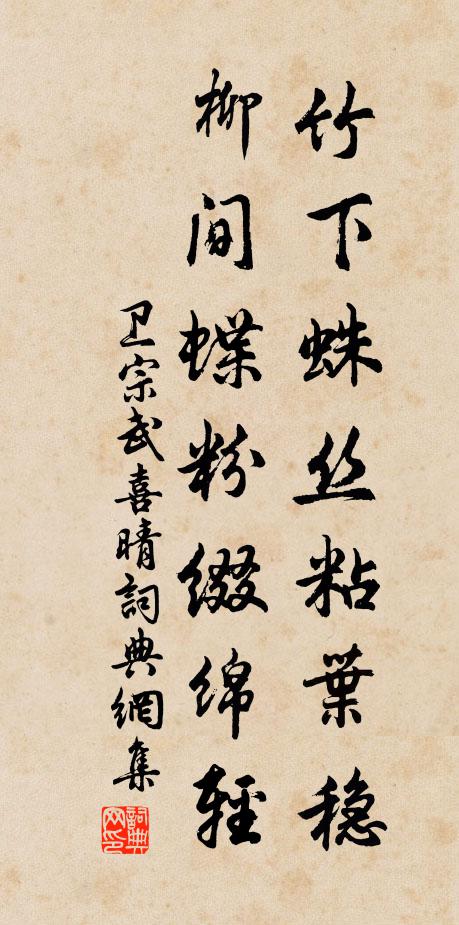 竹下蛛丝粘葉稳
柳间蝶粉缀绵輕
卫宗武喜晴詞典網集
詞典网印